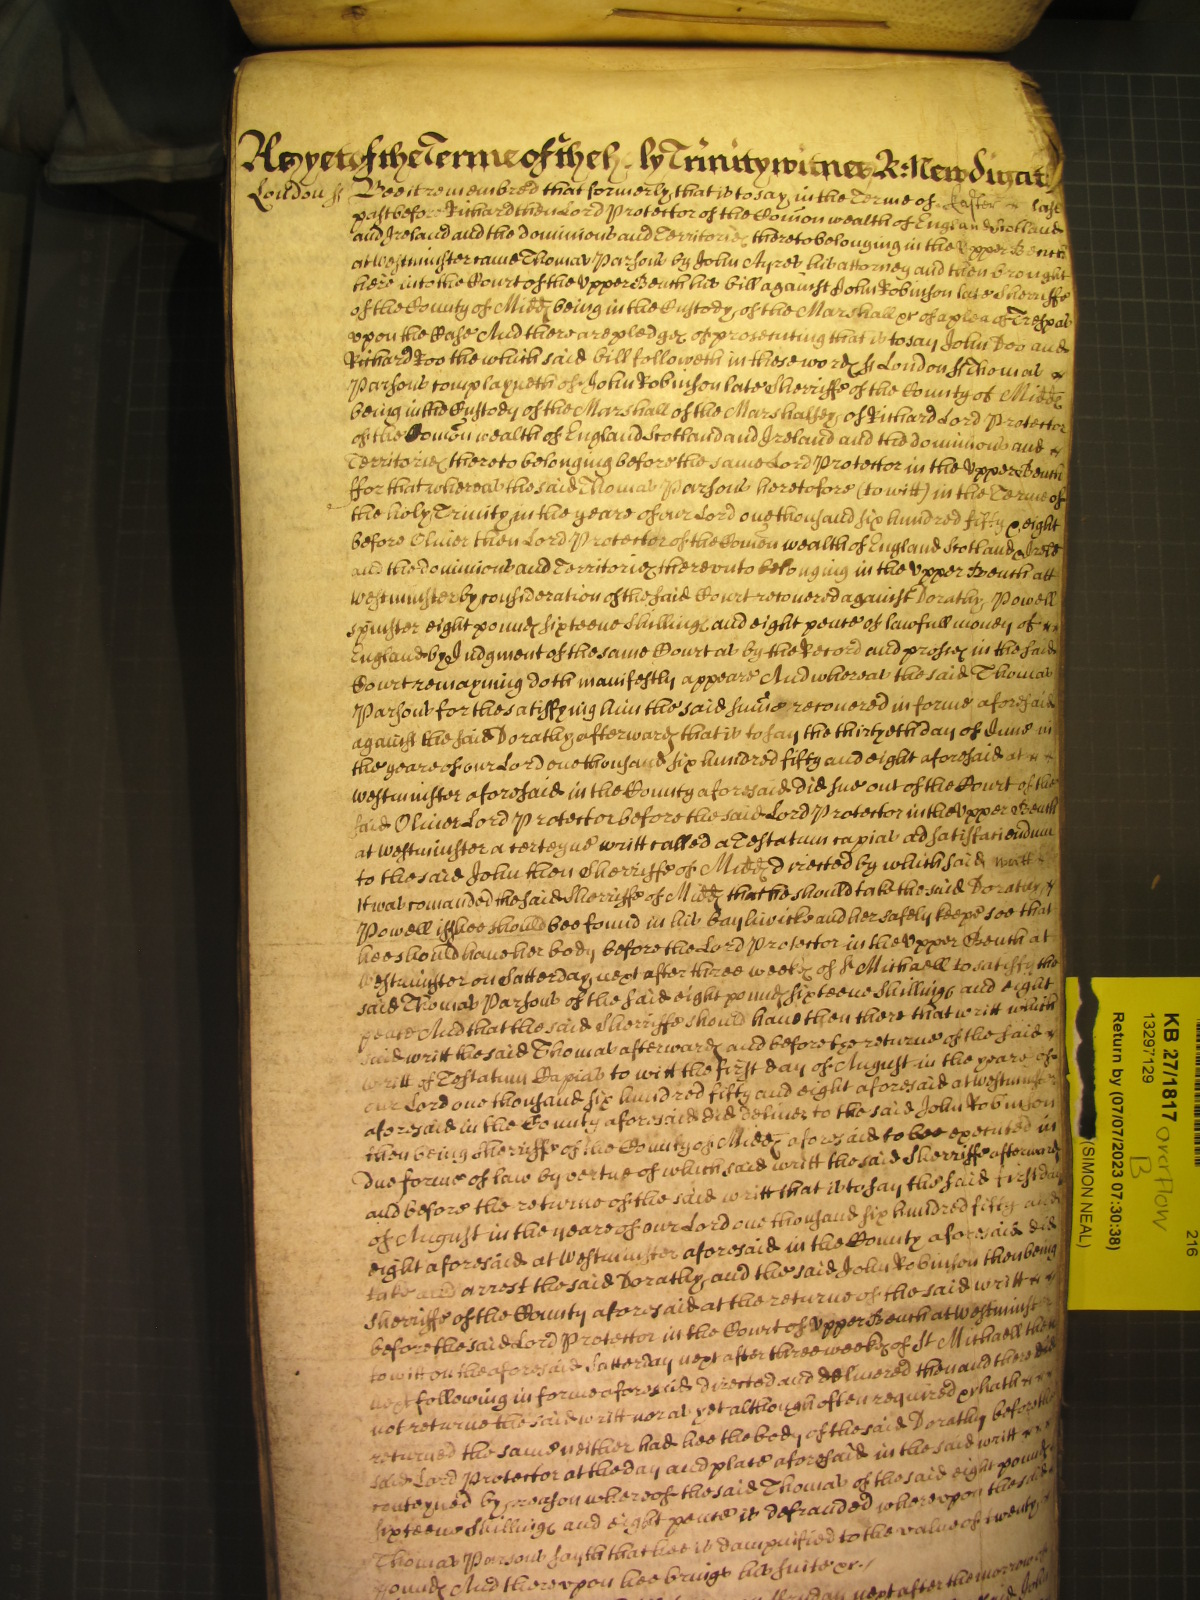 As yet of the Terme of the holy Trinity witnes R: Newdigate
London ss Bee it remembred that formerly, that is to say in the Terme of Easter last
past before Richard then Lord Protector of the Comon wealth of England Scotland
and Ireland and the dominions and Territories thereto belonging in the Upper Bench
at Westminster came Thomas Parsons by John Ayres his attorney and then brought
here into the Court of the Upper Bench his bill against John Robinson late Sherriffe
of the County of Midd being in the Custody of the Marshall &c of a plea of Trespas
upon the Case And there are pledges of prosecuting that is to say John Doo and
Richard Roo the which said bill followeth in these words ss London ss Thomas
Parsons complayneth of John Robinson late Sherriffe of the County of Midd
being in the Custody of the Marshall of the Marshalsey of Richard Lord Protector
of the Comon wealth of England Scotland and Ireland and the dominions and
Territories thereto belonging before the same Lord Protector in the Upper Bench
ffor that whereas the said Thomas Parsons heretofore (to witt) in the Terme of
the holy Trinity in the yeare of our Lord one thousand six hundred fifty & eight
before Oliver then Lord Protector of the Comon wealth of England Scotland & Irel
and the dominions and Territories thereunto belonging in the Upper Bench att
Westminster by consideration of the said Court recovered against Dorathy Powell
spinster eight pounds sixteene shillings and eight pence of lawfull money of
England by Judgment of the same Court as by the Record and proses in the said
Court remayning doth manifestly appeare And whereas the said Thomas
Parsons for the satisfying him the said sume recovered in forme aforesaid
against the said Dorathy afterwards that is to say the thirtyeth day of June in
the yeare of our Lord one thousand six hundred fifty and eight aforesaid at
Westminster aforesaid in the County aforesaid did sue out of the Court of the
said Oliver Lord Protector before the said Lord Protector in the Upper Bench
at Westminster a certeyne writt called a Testatum capias ad satisfaciendum
to the said John then Sherriffe of Midd directed by which said writt
it was comanded the said Sherriffe of Midd that he should take the said Dorathy
Powell if shee should bee found in his bayliwicke and her safely keepe soe that
hee should have her body before the Lord Protector in the Upper Bench at
Westminster on Satterday next after three weeks of St Michaell to satisfy the
said Thomas Parsons of the said eight pounds sixteene shillings and eight
pence And that the said Sherriffe should have then there that writt which
said writt the said Thomas afterwards and before the returne of the said
writt of Testatum Capias to witt the first day of August in the yeare of
our Lord one thousand six hundred fifty and eight aforesaid at Westminster
aforesaid in the County aforesaid did deliver to the said John Robinson
then being Sherriffe of the County of Midd aforesaid to bee executed in
due forme of law by vertue of which said writt the said Sherriffe afterwards
and before the returne of the said writt that is to say the said first day
of August in the yeare of our Lord one thousand six hundred fifty and
eight aforesaid at Westminster aforesaid in the County aforesaid did
take and arrest the said Dorathy and the said John Robinson then being
Sherriffe of the County aforesaid at the returne of the said writt
before the said Lord Protector in the Court of Upper Bench at Westminster
to witt on the aforesaid Satterday next after three weeks of St Michaell then
next following in forme aforesaid directed and delivered then and there did
not returne the said writt nor as yet although often required &c hath
returned the same neither had hee the body of the said Dorathy before the
said Lord Protector at the day and place aforesaid in the said writt
conteyned by reason whereof the said Thomas of the said eight pounds
sixteene shillings and eight pence is defrauded whereupon the said
Thomas Parsons sayth that hee is dampnified to the value of twenty
pounds And thereupon hee brings his suite &c
next after the morrow of
KB 27/1817 overflow
B
13297129
Return by (07/07/2023 07:30:38)
(SIMON NEAL)
216